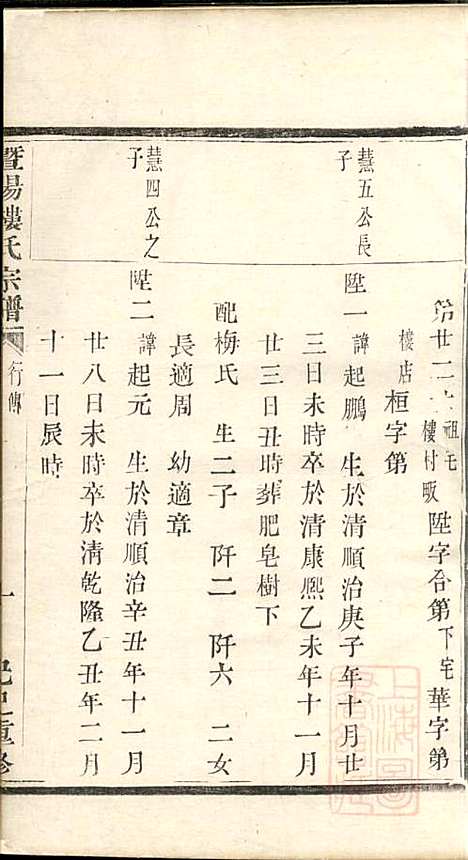 第廿二 祖宅樓村畈 陞字合第下宅華字第
樓店桓字第
慧五公長子
陞一 諱起鵬 生於清順治庚子年十月廿
三日未時卒於清康熙乙未年十一月
廿三日丑時葬肥皂樹下
配梅氏 生二子 阡二 阡六 二女
長適周 幼適章
慧四公之子
陞二 諱起元 生於清順治辛丑年十一月
廿八日未時卒於清乾隆乙丑年二月
十一日辰時
暨陽樓氏宗譜 行傳 一 己巳重修
上海圖書館藏